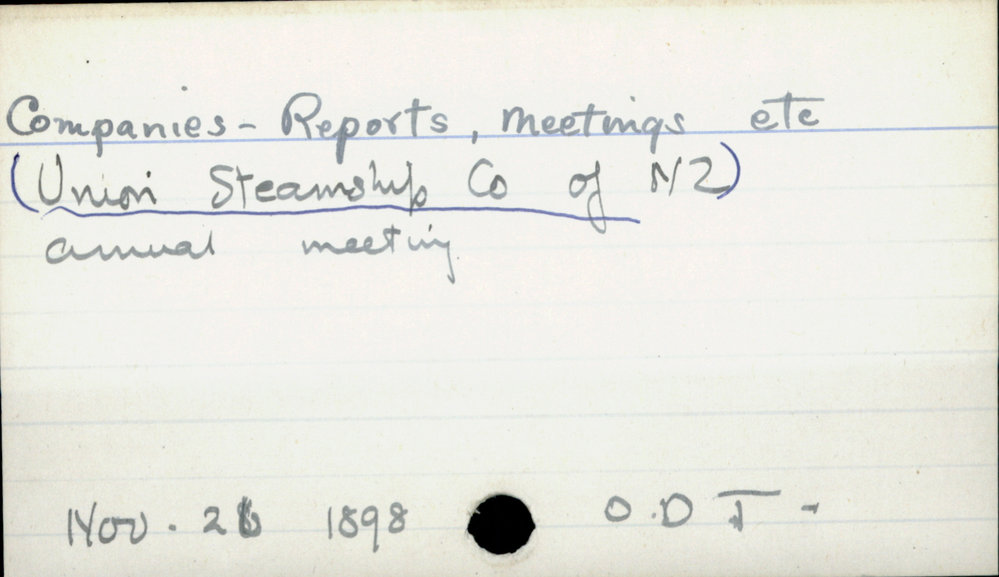 Companies - Reports, meetings etc
(Union Steamship Co of NZ)
annual meeting
Nov. 26 1898 O.D.T -